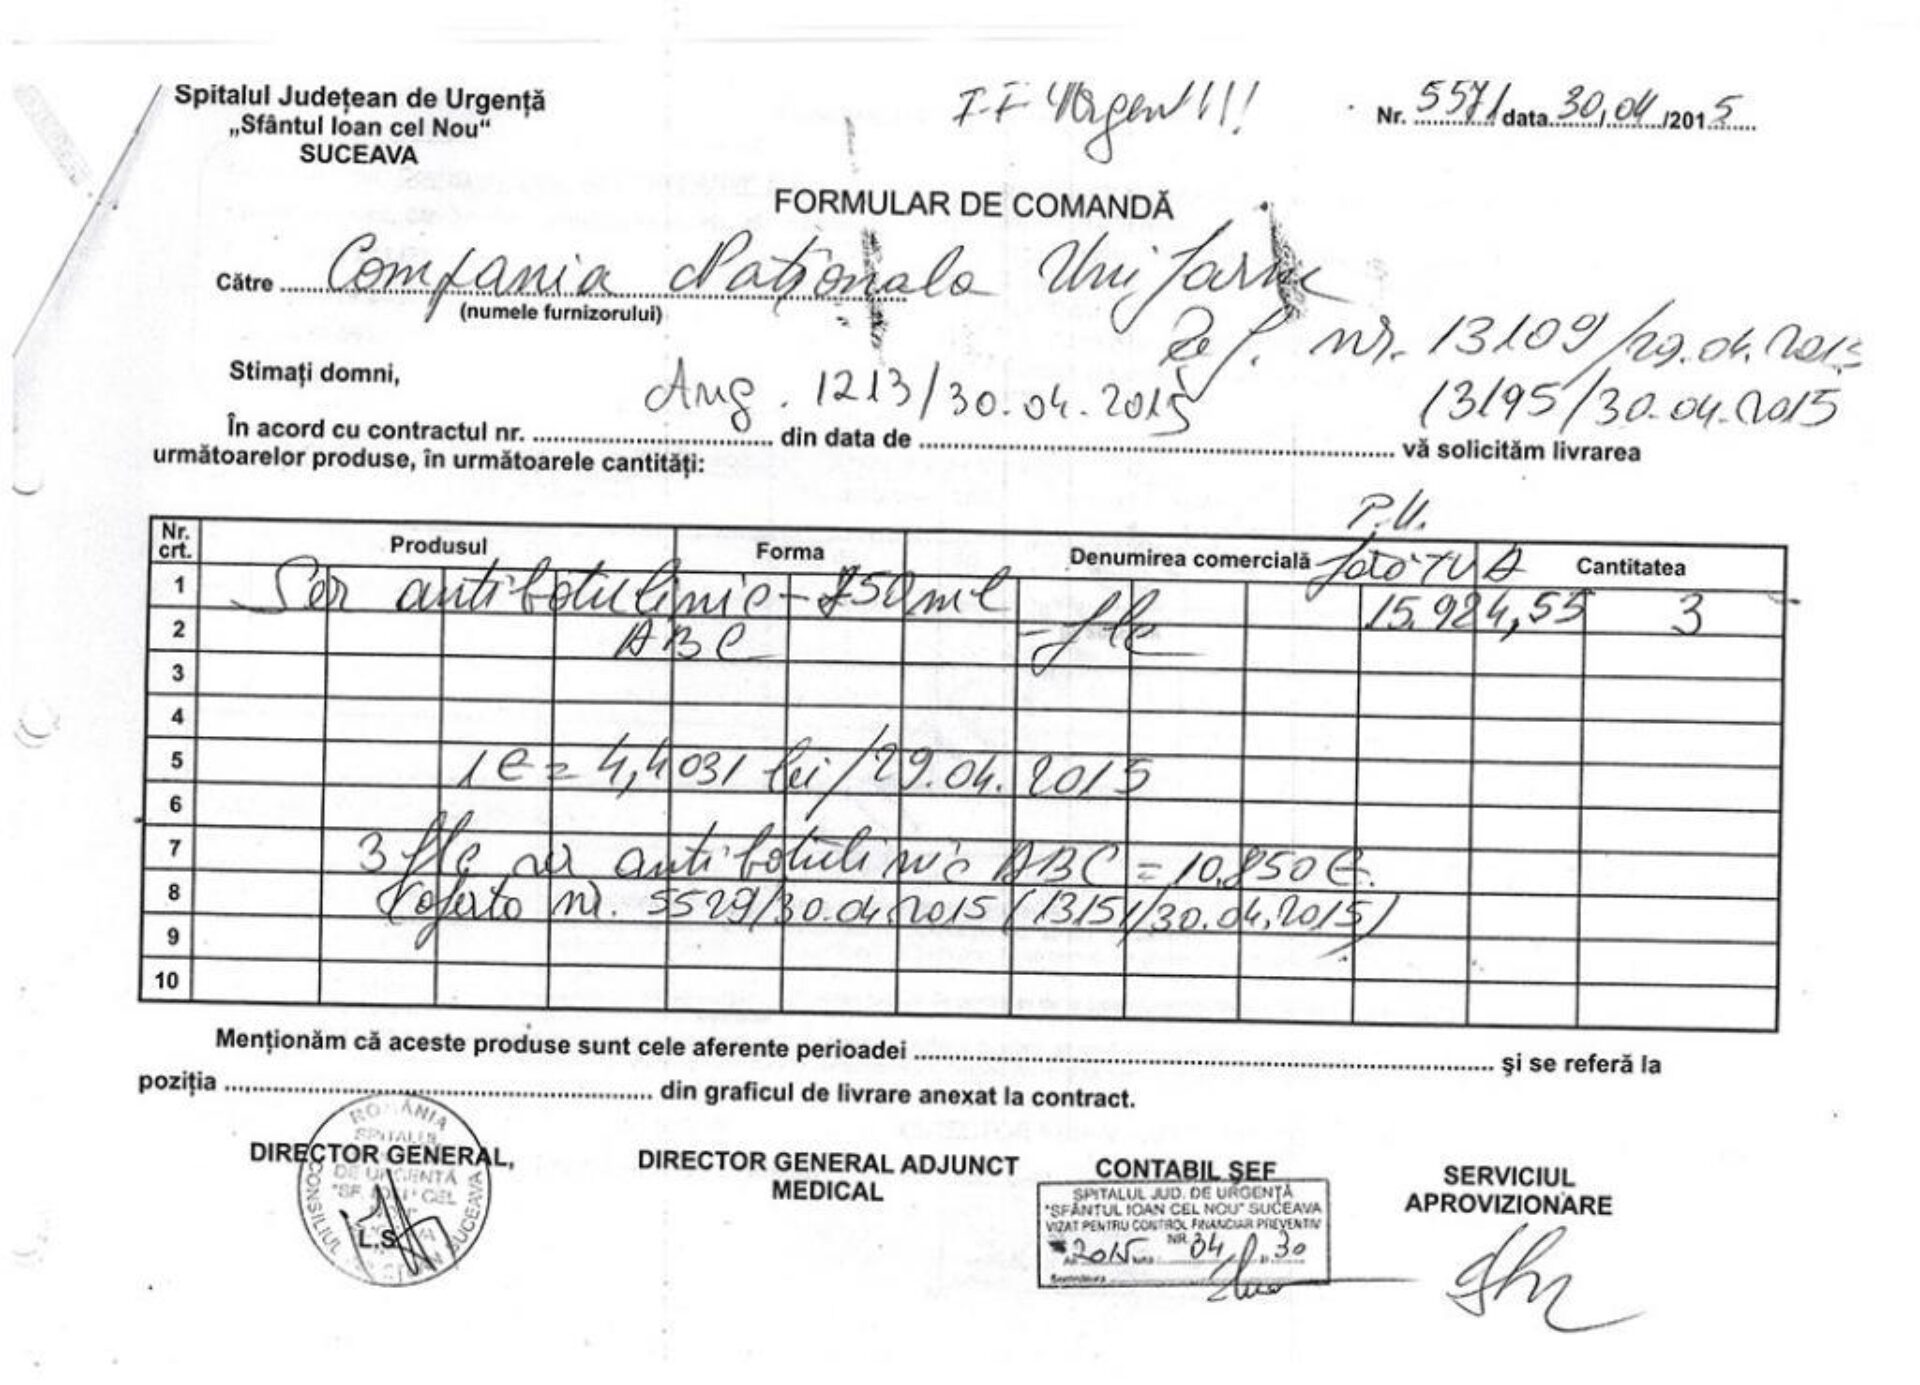 Spitalul Județean de Urgență
„Sfântul Ioan cel Nou“
SUCEAVA
F.F. Urgent!!!
Nr. 5571 data 30/04/2015
FORMULAR DE COMANDĂ
Către Compania Naționala Unifarm
(numele furnizorului)
Ref. nr. 13109/29.04.2015
13195/30.04.2015
Stimați domni,
Ang. 1213/30.04.2015
În acord cu contractul nr. din data de vă solicităm livrarea
următoarelor produse, în următoarele cantități:
P.U.
Nr. crt. Produsul Forma Denumirea comercială fara TVA Cantitatea
1 Ser antibotulinic - 250 ml 15.924,55 3
2 ABC - flc
3
4
5 1€ = 4,4031 lei/29.04.2015
6
7 3 flc ser antibotulinic ABC = 10.850 €.
8 oferta nr. 5529/30.04.2015 (13151/30.04.2015)
9
10
Menționăm că aceste produse sunt cele aferente perioadei și se referă la
poziția din graficul de livrare anexat la contract.
DIRECTOR GENERAL,
L.S.
ROMÂNIA
SPITALUL
DE URGENȚĂ
CONSILIUL
SUCEAVA
DIRECTOR GENERAL ADJUNCT
MEDICAL
CONTABIL ȘEF
SPITALUL JUD. DE URGENȚĂ
"SFÂNTUL IOAN CEL NOU" SUCEAVA
VIZAT PENTRU CONTROL FINANCIAR PREVENTIV
NR.
2015 04 30
SERVICIUL
APROVIZIONARE